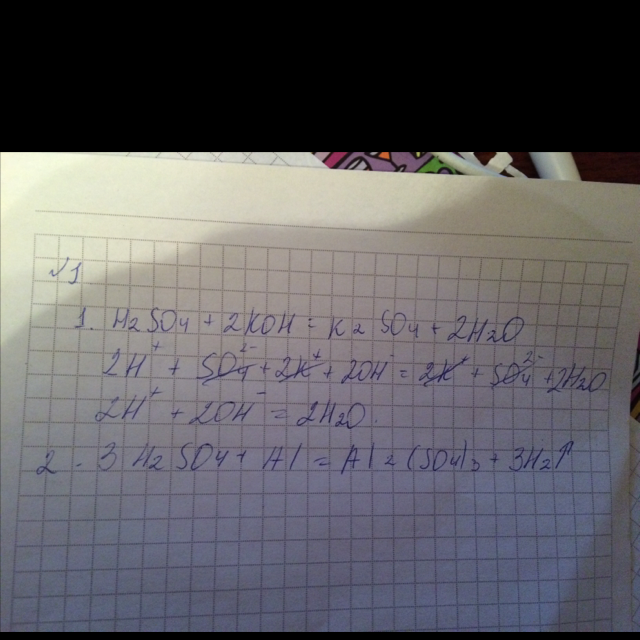 √1
1. H2SO4 + 2KOH = K2SO4 + 2H2O
2H⁺ + SO4²⁻ + 2K⁺ + 2OH⁻ = 2K⁺ + SO4²⁻ + 2H2O
2H⁺ + 2OH⁻ = 2H2O.
2. 3H2SO4 + Al = Al2(SO4)3 + 3H2↑